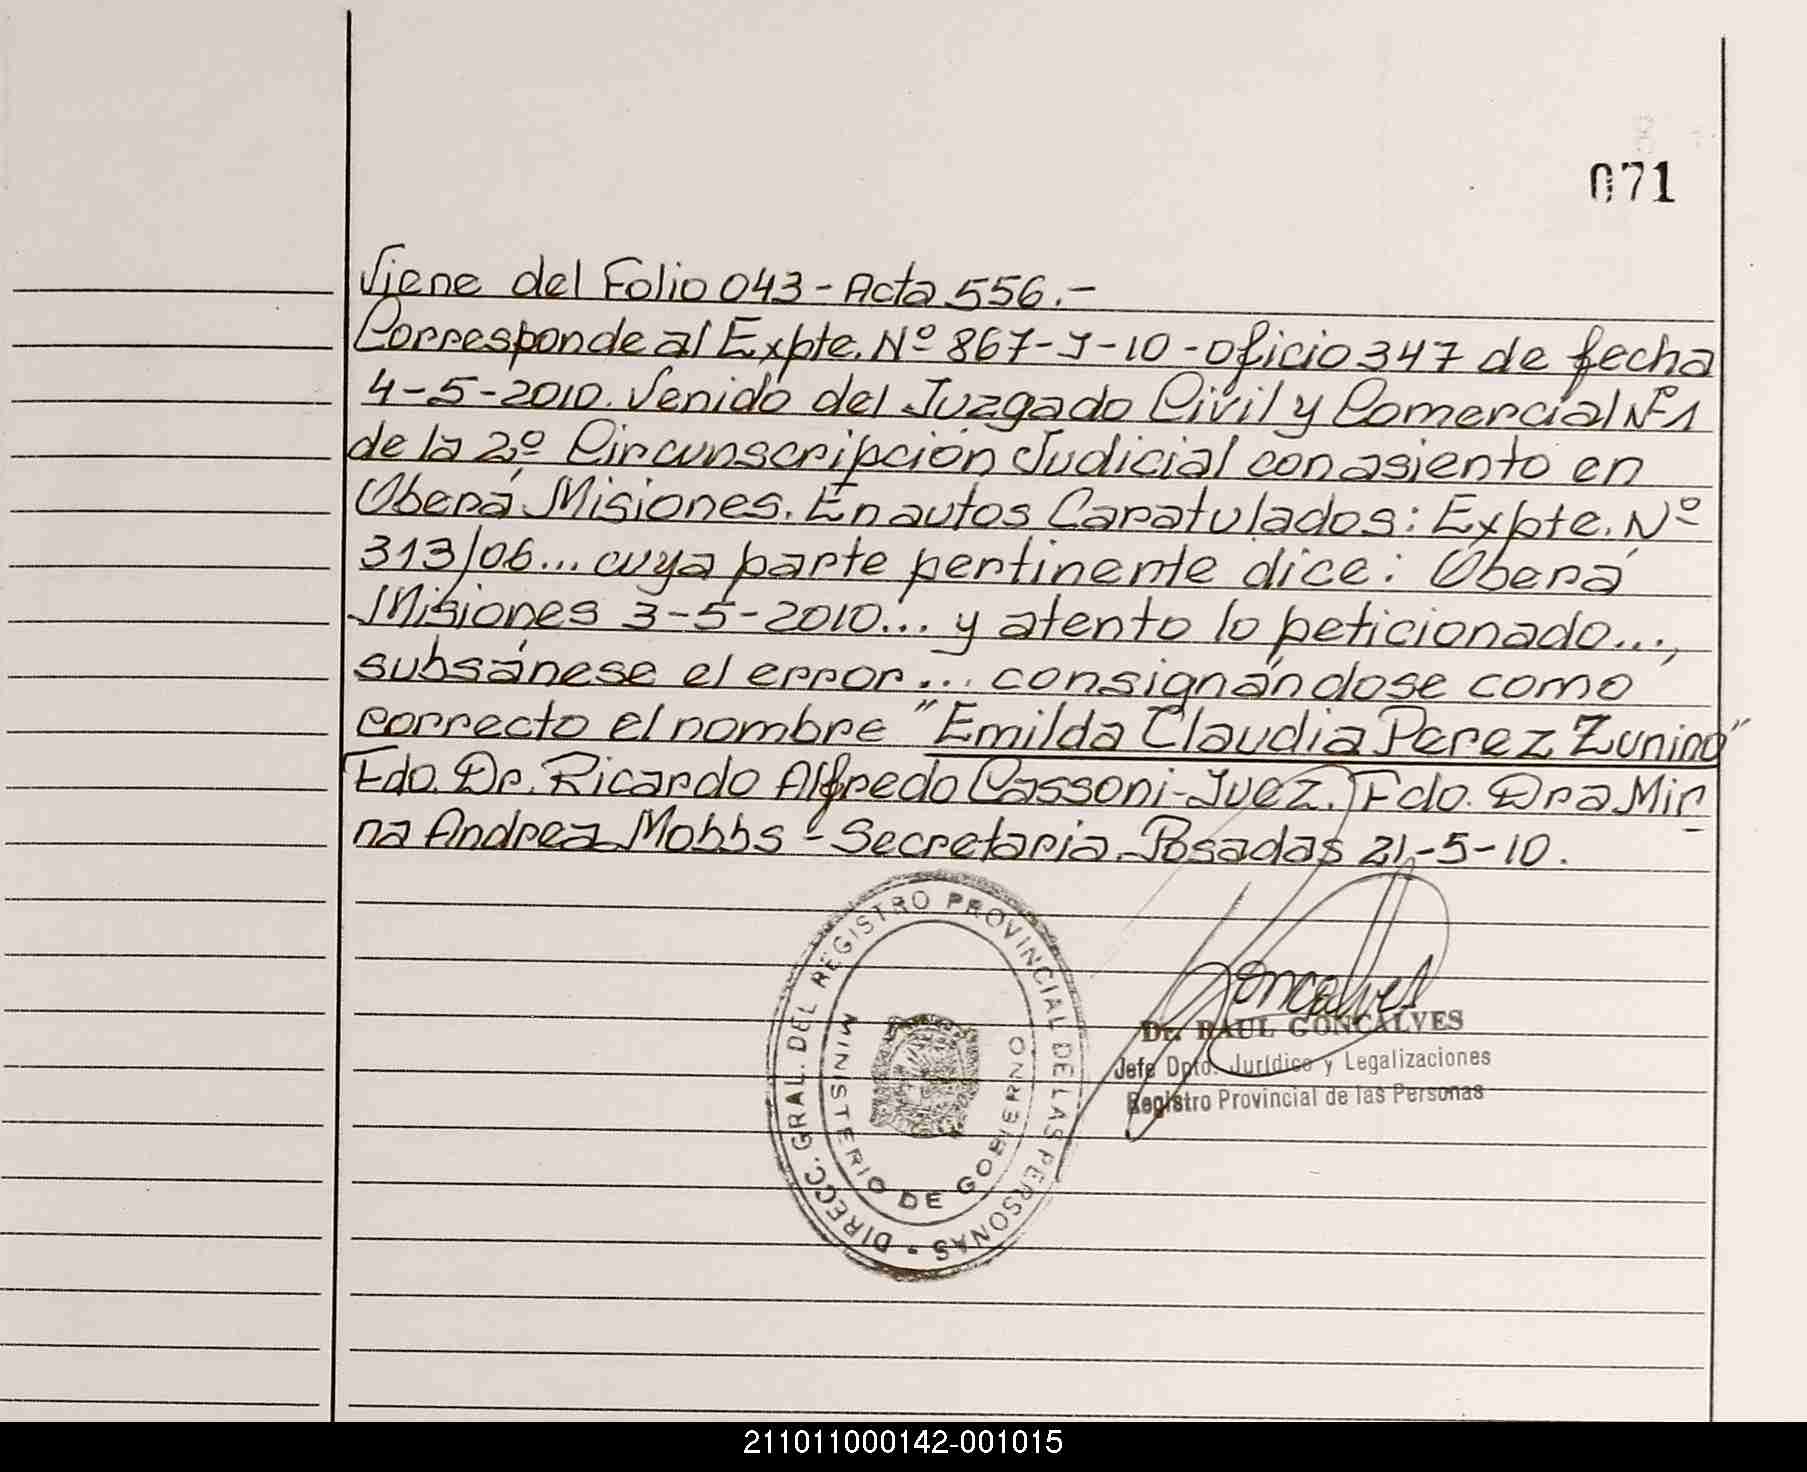 071
Viene del Folio 043 - Acta 556.-
Corresponde al Expte. Nº 867-J-10 - oficio 347 de fecha
4-5-2010. Venido del Juzgado Civil y Comercial Nº 1
de la 2º Circunscripción Judicial con asiento en
Oberá Misiones. En autos Caratulados: Expte. Nº
313/06... cuya parte pertinente dice: Oberá
Misiones 3-5-2010... y atento lo peticionado...,
subsánese el error... consignándose como
correcto el nombre "Emilda Claudia Perez Zunino"
Fdo. Dr. Ricardo Alfredo Cassoni - Juez. Fdo. Dra Mir
na Andrea Mobbs - Secretaria. Posadas 21-5-10.
DIRECC. GRAL. DEL REGISTRO PROVINCIAL DE LAS PERSONAS
MINISTERIO DE GOBIERNO
Goncalves
Dr. RAUL GONCALVES
Jefe Dpto. Jurídico y Legalizaciones
Registro Provincial de las Personas
211011000142-001015